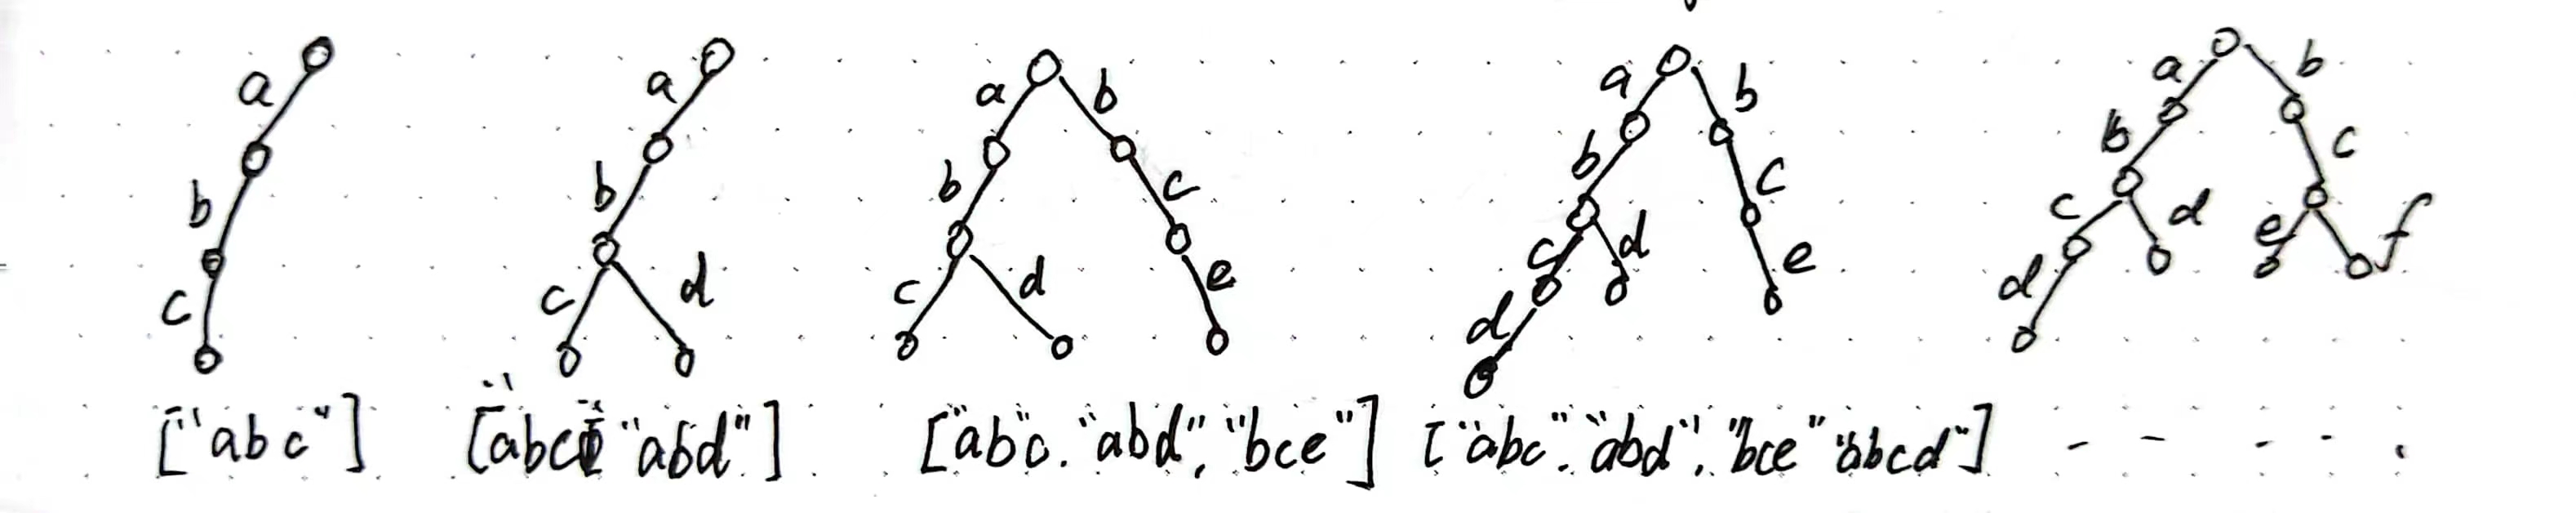 a
b
c
["abc"]
a
b
c d
["abc "abd"]
a b
b c
c d e
["abc". "abd", "bce"]
a b
b c
c d e
d
["abc". "abd", "bce" "abcd"]
a b
b c
c d e f
d
- - - - .